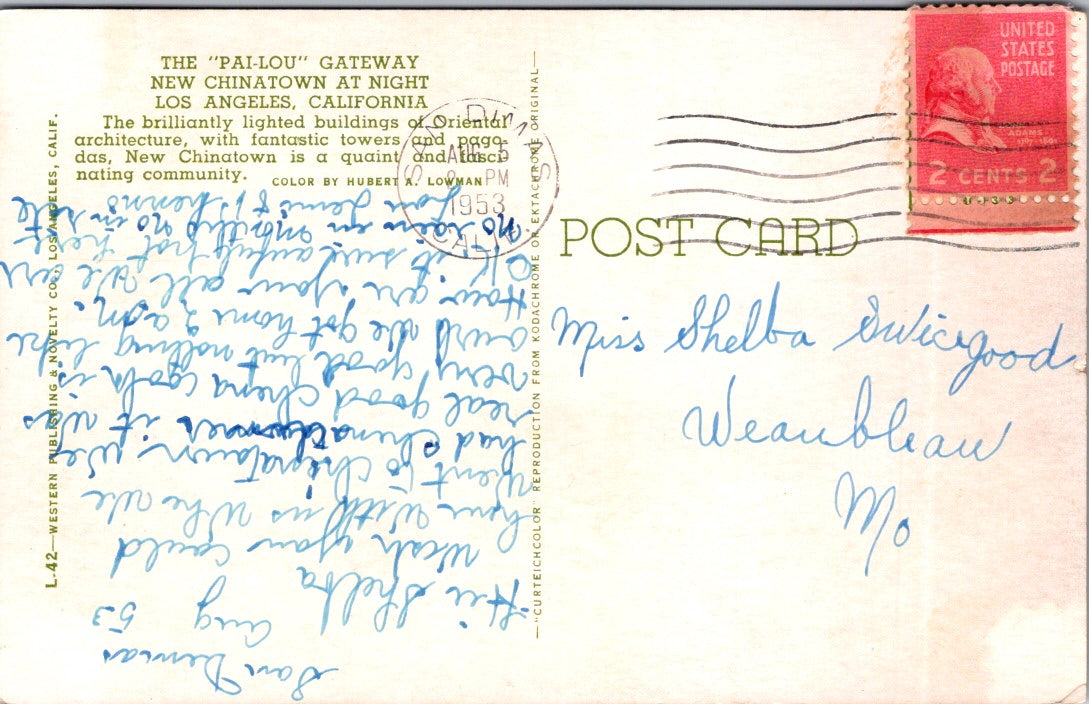 THE "PAI-LOU" GATEWAY
NEW CHINATOWN AT NIGHT
LOS ANGELES, CALIFORNIA
The brilliantly lighted buildings of Oriental
architecture, with fantastic towers and pago-
das, New Chinatown is a quaint and fasci-
nating community.
COLOR BY HUBERT A. LOWMAN
L-42—WESTERN PUBLISHING & NOVELTY CO., LOS ANGELES, CALIF.
"CURTEICHCOLOR" REPRODUCTION FROM KODACHROME OR EKTACHROME ORIGINAL
SAN DIMAS
AUG
PM
1953
CALIF.
UNITED
STATES
POSTAGE
ADAMS
2 CENTS 2
POST CARD
Miss Shelba Swicegood
Weaubleau
Mo
San Demas
Aug 53
Hi Shelba
Wish you could
have with us Who we
went to Chinatown, we
had China it was
real good China cook is
very good but nothing like
ours We got home 2 am.
How are your all We are
OK it sure awful hot here
No rain in months no in site
San